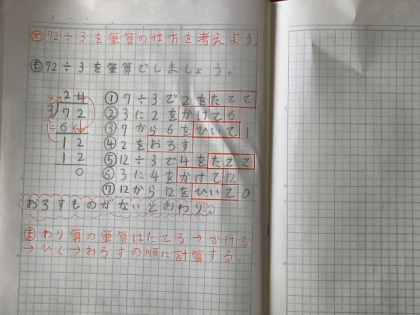 め 72÷3を筆算の仕方を考えよう。
も 72÷3を筆算でしましょう。
24
3)72
6
12
12
0
① 7÷3で2をたてて
② 3に2をかけて6
③ 7から6をひいて1
④ 2をおろす
⑤ 12÷3で4をたてて
⑥ 3に4をかけて12
⑦ 12から12をひいて0
おろすものがないとおわり。
ま わり算の筆算はたてる→かける
→ひく→おろすの順に計算する。